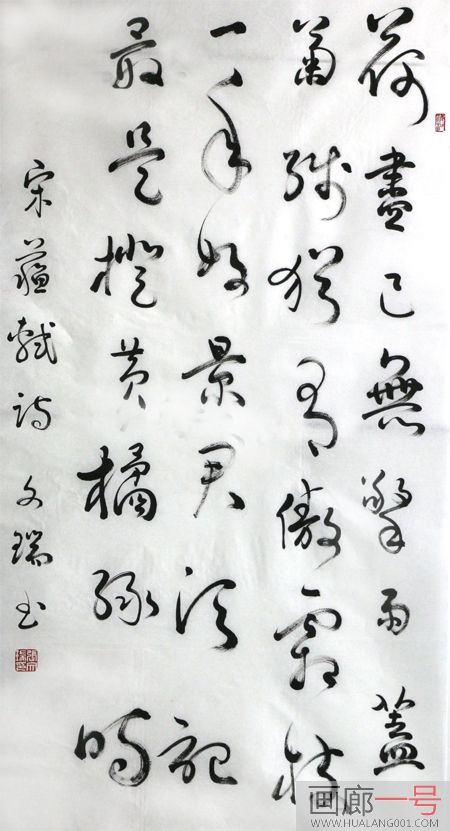 荷盡已無擎雨蓋
菊殘猶有傲霜枝
一年好景君須記
最是橙黄橘緑時
宋蘇軾詩 文瑞书
画廊一号
WWW.HUALANG001.COM